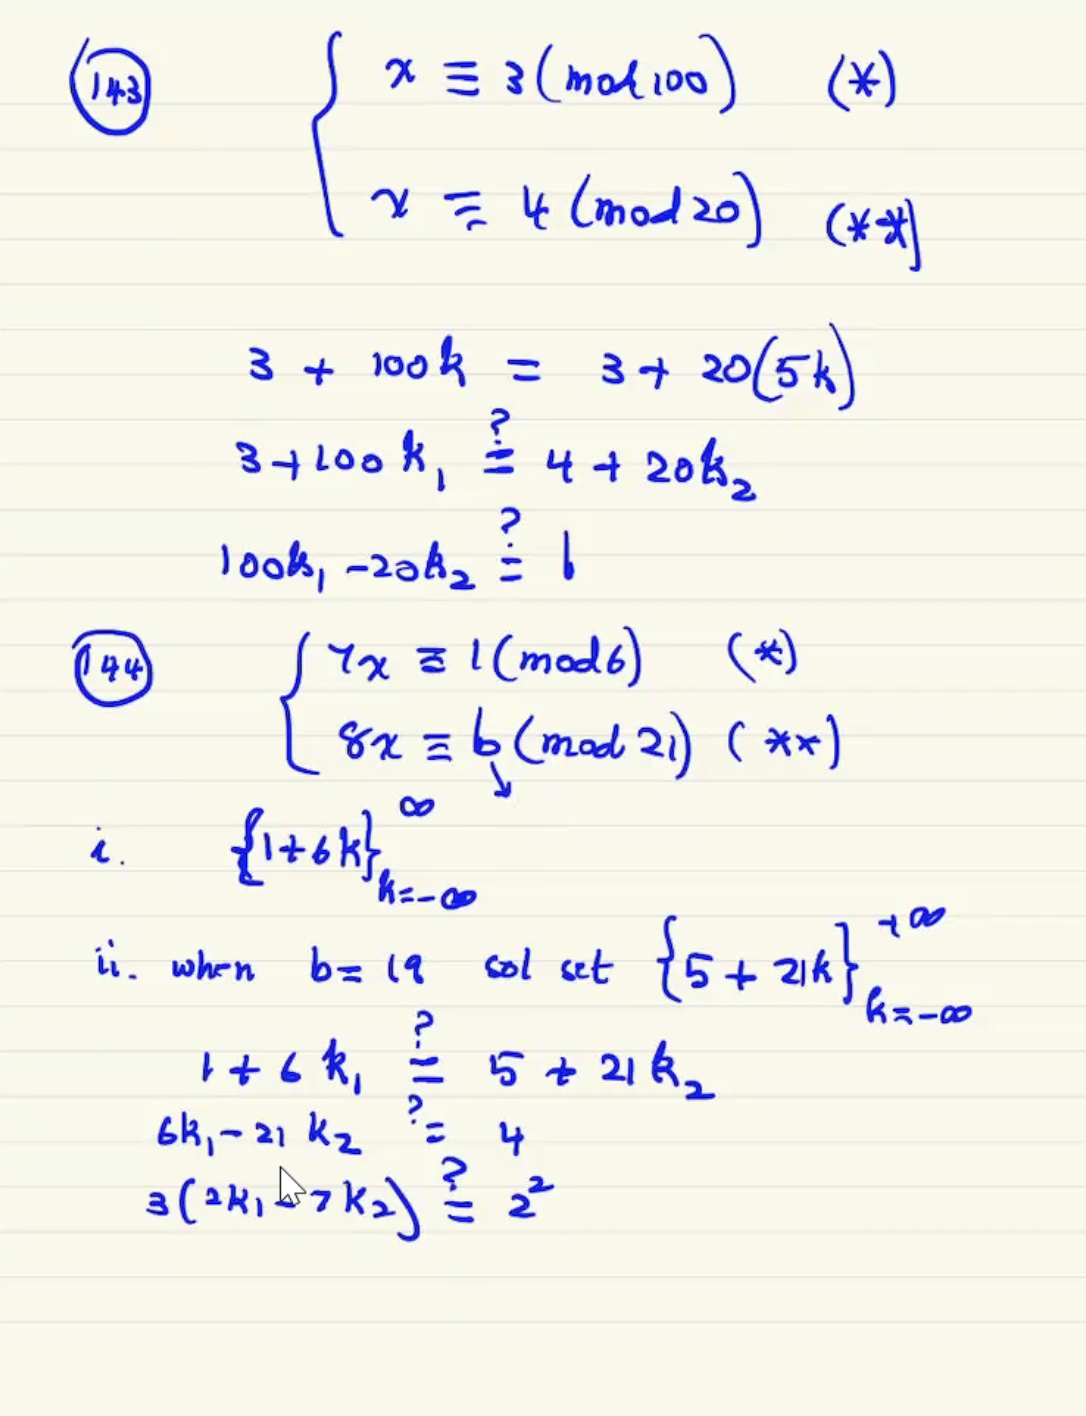 143 { x ≡ 3 (mod 100) (*)
x ≡ 4 (mod 20) (**)
3 + 100k = 3 + 20(5k)
3 + 100k₁ ≟ 4 + 20k₂
100k₁ - 20k₂ ≟ 1
144 { 7x ≡ 1 (mod 6) (*)
8x ≡ b (mod 21) (**)
i. {1 + 6k}_{k=-∞}^{∞}
ii. when b = 19 sol set {5 + 21k}_{k=-∞}^{+∞}
1 + 6k₁ ≟ 5 + 21k₂
6k₁ - 21k₂ ≟ 4
3(2k₁ - 7k₂) ≟ 2²